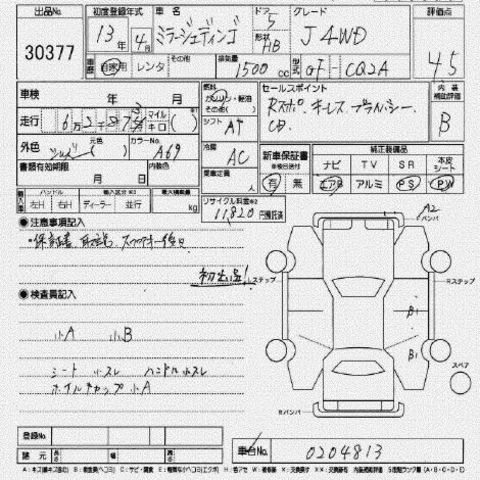 出品No. 初度登録年式 車名 ドア グレード 評価点
30377 13年 4月 ミラージュディンゴ 5 形状 HB J 4WD 4.5
車歴 自家用 レンタ その他 排気量 1500cc 型式 GF-CQ2A
車検 年 月 燃料 ガソリン・軽油 その他( ) セールスポイント 内装補助評価
走行 マイル キロ ( ) シフト AT Rスポ、キーレス、プライバシー、 B
CD.
外色 元色 ( ) カラーNo. A69 冷房 AC 新車保証書 純正装備品
ナビ TV SR 本皮シート
書類有効期限 内装色 乗車定員 人 有 無 エアB アルミ PS PW
月 日
輸入車 ハンドル 輸入区分 最大積載量 リサイクル料金
左H 右H ディーラー 並行 kg 11,820 円預託済
●注意事項記入 A2
Fバンパ
初出品! Lステップ Rステップ
●検査員記入
小A 小B B1
シート 小スレ ハンドル小スレ B1
ホイルキャップ 小A スペア
Rバンパ
登録No.
諸元 長 幅 高 車台No. 0204813